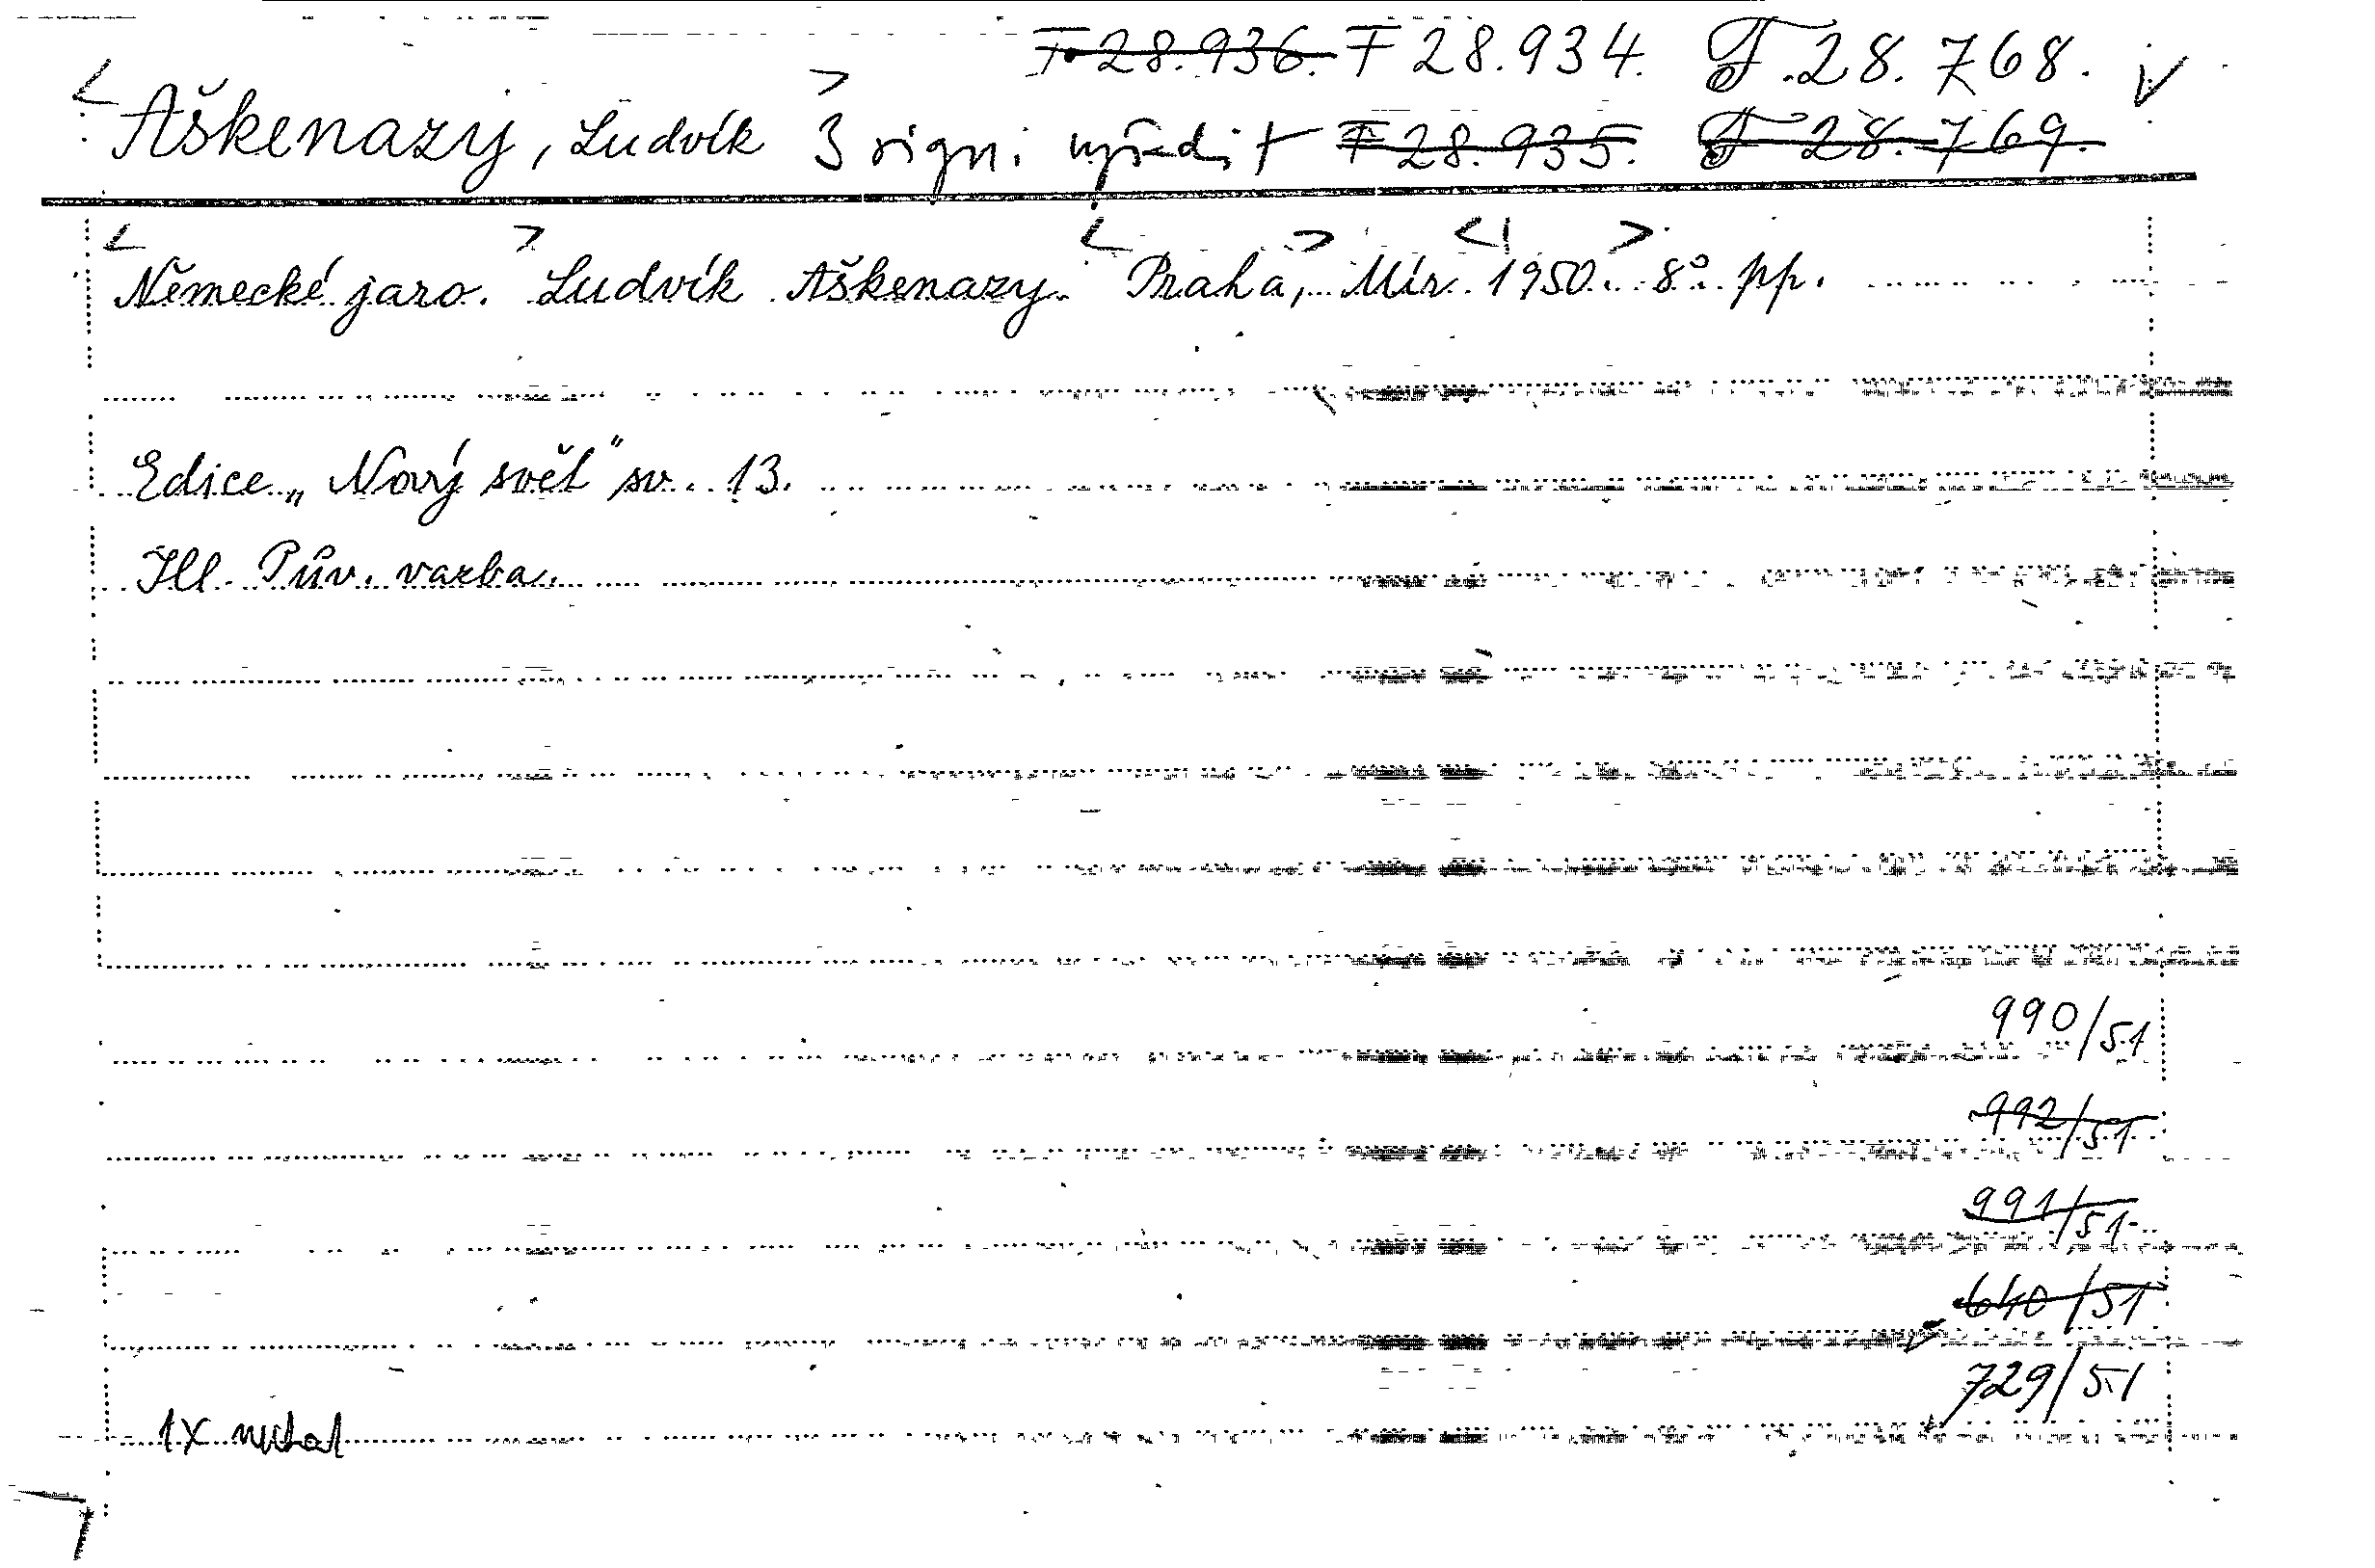 F 28.936. F 28.934. F. 28.768.
Aškenazy, Ludvík 3 sign. vyřadit F 28.935. F 28.769.
Německé jaro. Ludvík Aškenazy. Praha, Mír 1950. 8°. pp.
Edice „Nový svět" sv. 13.
Ill. Pův. vazba.
990/51
992/51
991/51
640/51
729/51
1x